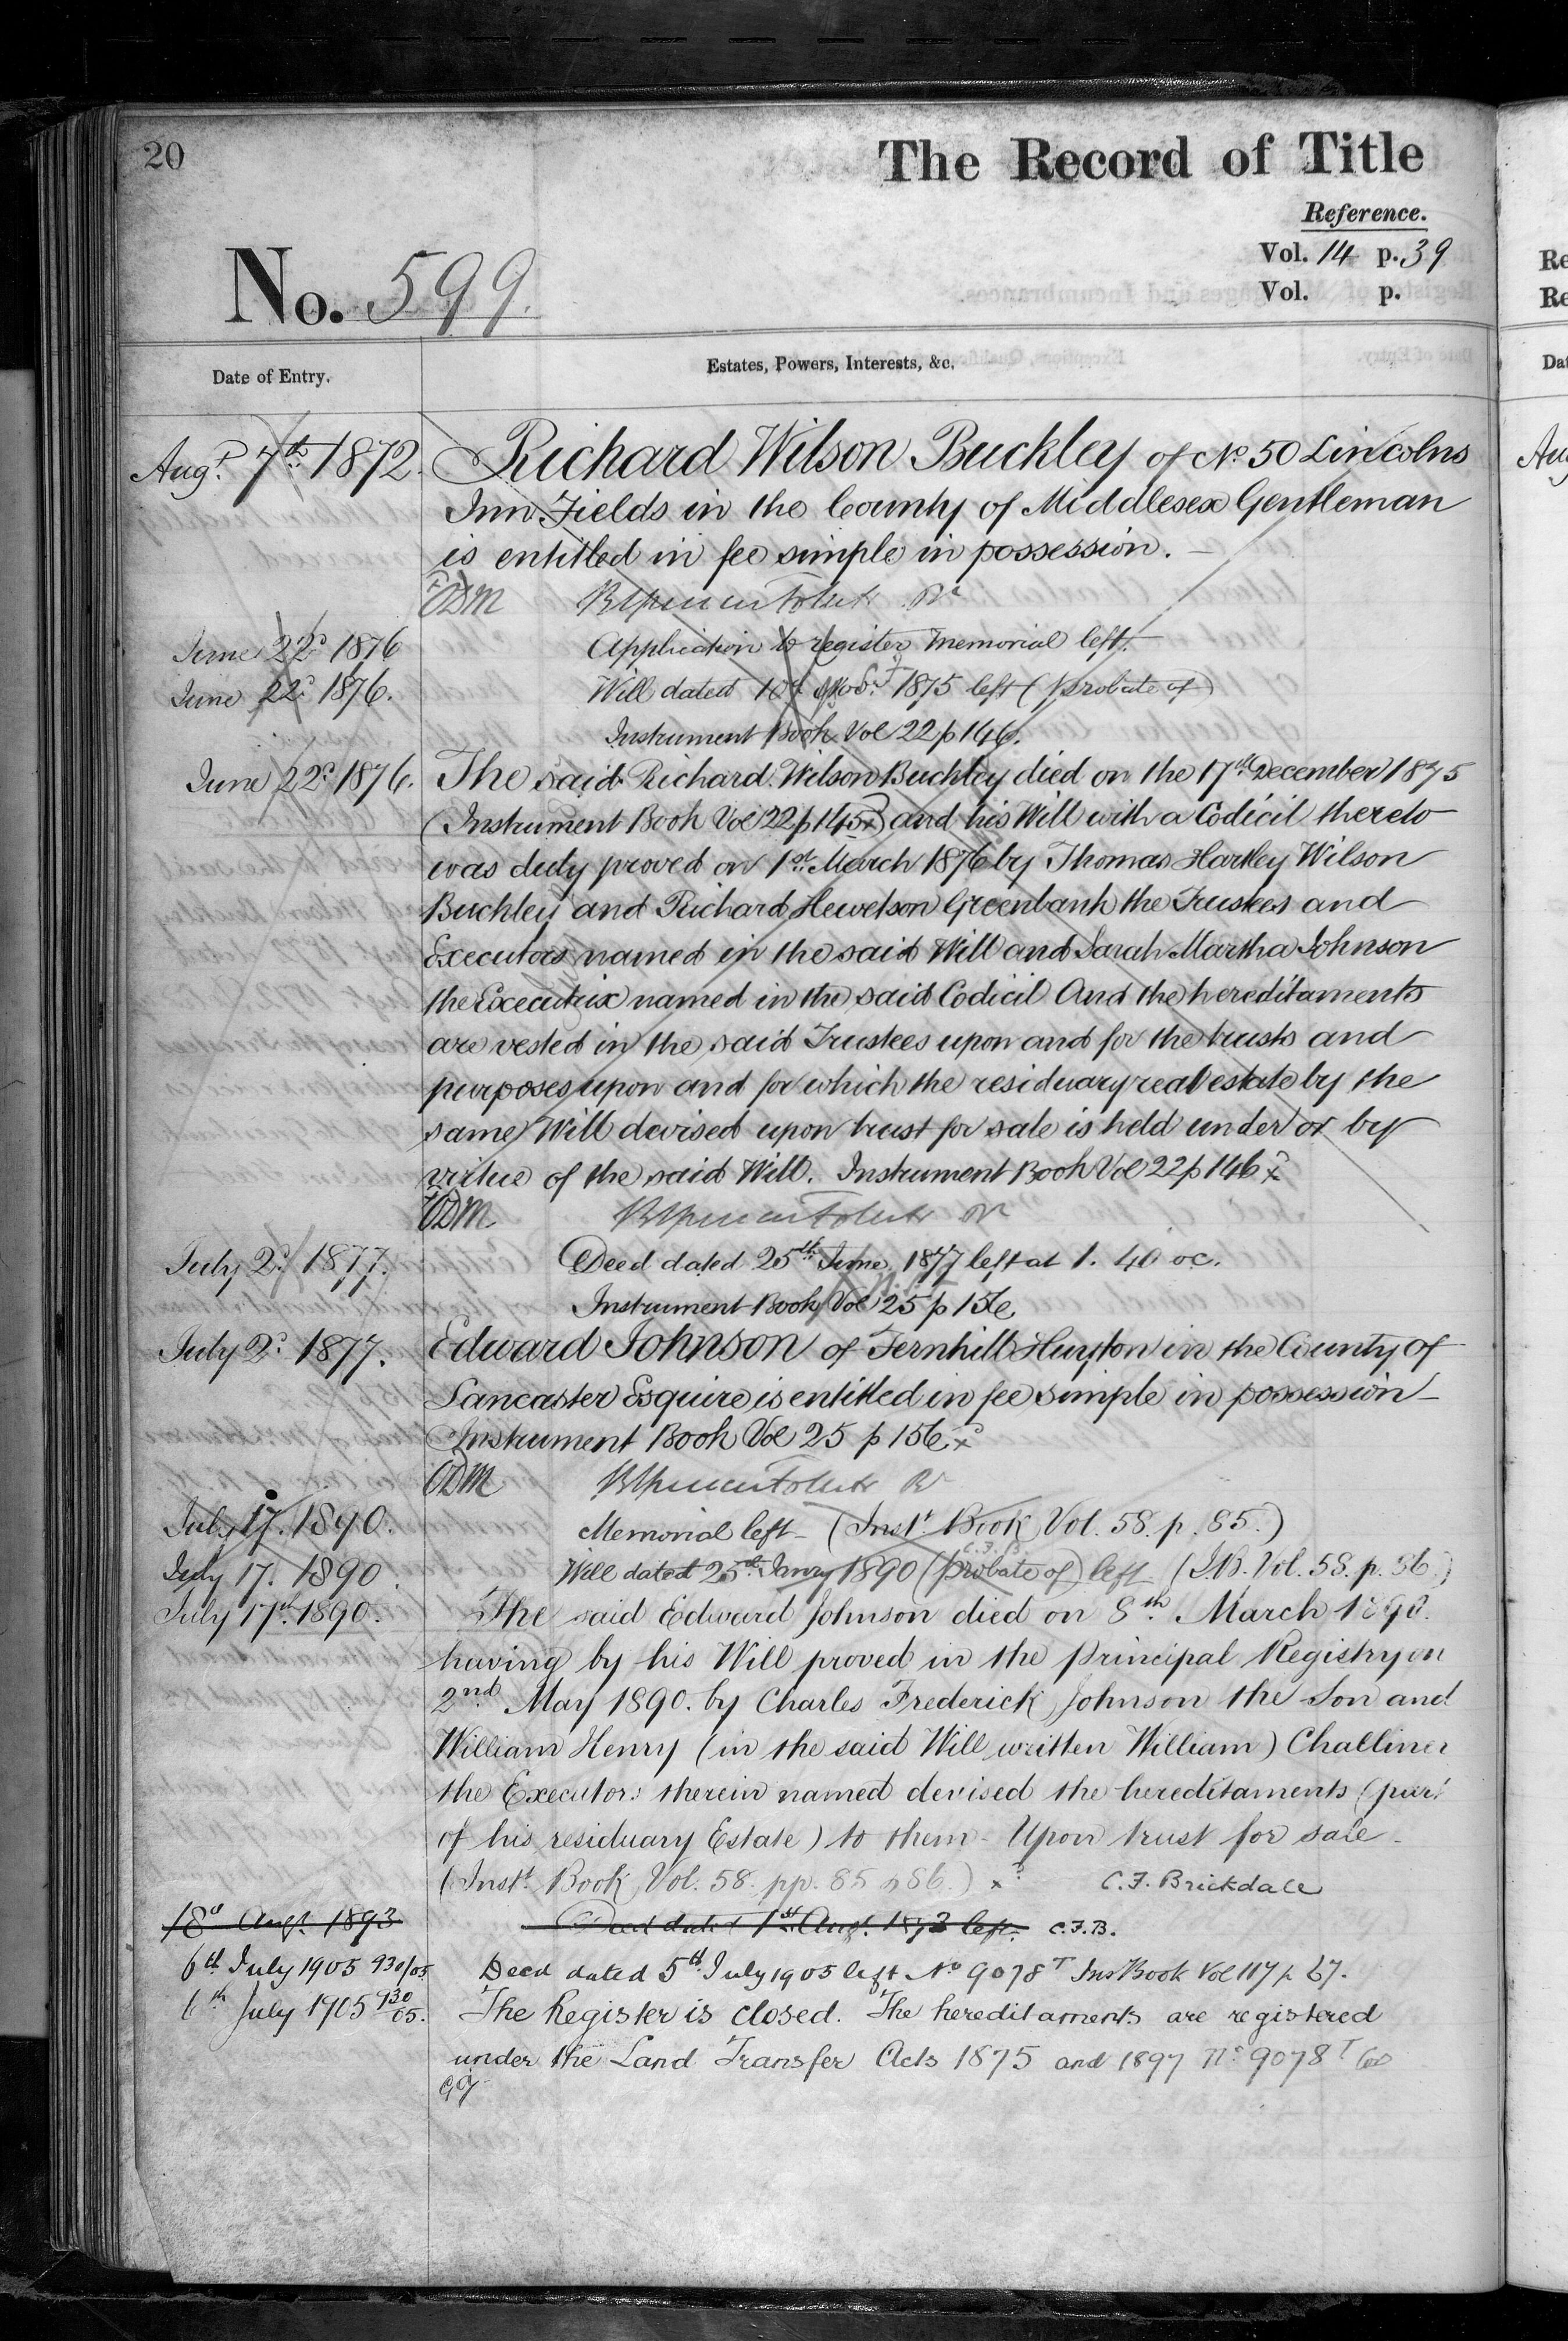 20
The Record of Title
Reference.
Vol. 14 p. 39
No. 599.
Vol. p.
Date of Entry.
Estates, Powers, Interests, &c.
Augt. 7th 1872. Richard Wilson Buckley of No. 50 Lincolns
Inn Fields in the County of Middlesex Gentleman
is entitled in fee simple in possession.
June 22d 1876 Application to register Memorial left.
June 22d 1876. Will dated 10th Novr. 1875 left (Probate of)
Instrument Book Vol 22 p 146.
June 22d 1876. The said Richard Wilson Buckley died on the 17th December 1875
(Instrument Book Vol 22 p 145) and his Will with a Codicil thereto
was duly proved on 1st March 1876 by Thomas Hartley Wilson
Buckley and Richard Hewetson Greenbank the Trustees and
Executors named in the said Will and Sarah Martha Johnson
the Executrix named in the said Codicil And the hereditaments
are vested in the said Trustees upon and for the trusts and
purposes upon and for which the residuary real estate by the
same Will devised upon trust for sale is held under or by
virtue of the said Will. Instrument Book Vol 22 p 146
July 2d 1877. Deed dated 25th June 1877 left at 1.40 oc.
Instrument Book Vol 25 p 156
July 2d 1877. Edward Johnson of Fernhill Huyton in the County of
Lancaster Esquire is entitled in fee simple in possession
Instrument Book Vol 25 p 156
July 17. 1890. Memorial left - (Inst. Book Vol. 58. p. 85.)
July 17. 1890. Will dated 25th Janry 1890 (probate of) left (I.B. Vol. 58. p. 86.)
July 17th 1890. The said Edward Johnson died on 8th March 1890.
having by his Will proved in the Principal Registry on
2nd May 1890. by Charles Frederick Johnson the Son and
William Henry (in the said Will written William) Challiner
the Executors therein named devised the hereditaments (part
of his residuary Estate) to them - Upon trust for sale -
(Inst. Book Vol. 58. pp. 85 & 86.) C. F. Brickdale
18th Augt. 1893 Deed dated 1st Augt. 1893 left. C.F.B.
6th July 1905 930/05 Deed dated 5th July 1905 left No 9078T Ins Book Vol 117 p 67.
6th July 1905 930/05. The Register is closed. The hereditaments are registered
under the Land Transfer Acts 1875 and 1897 No. 9078T